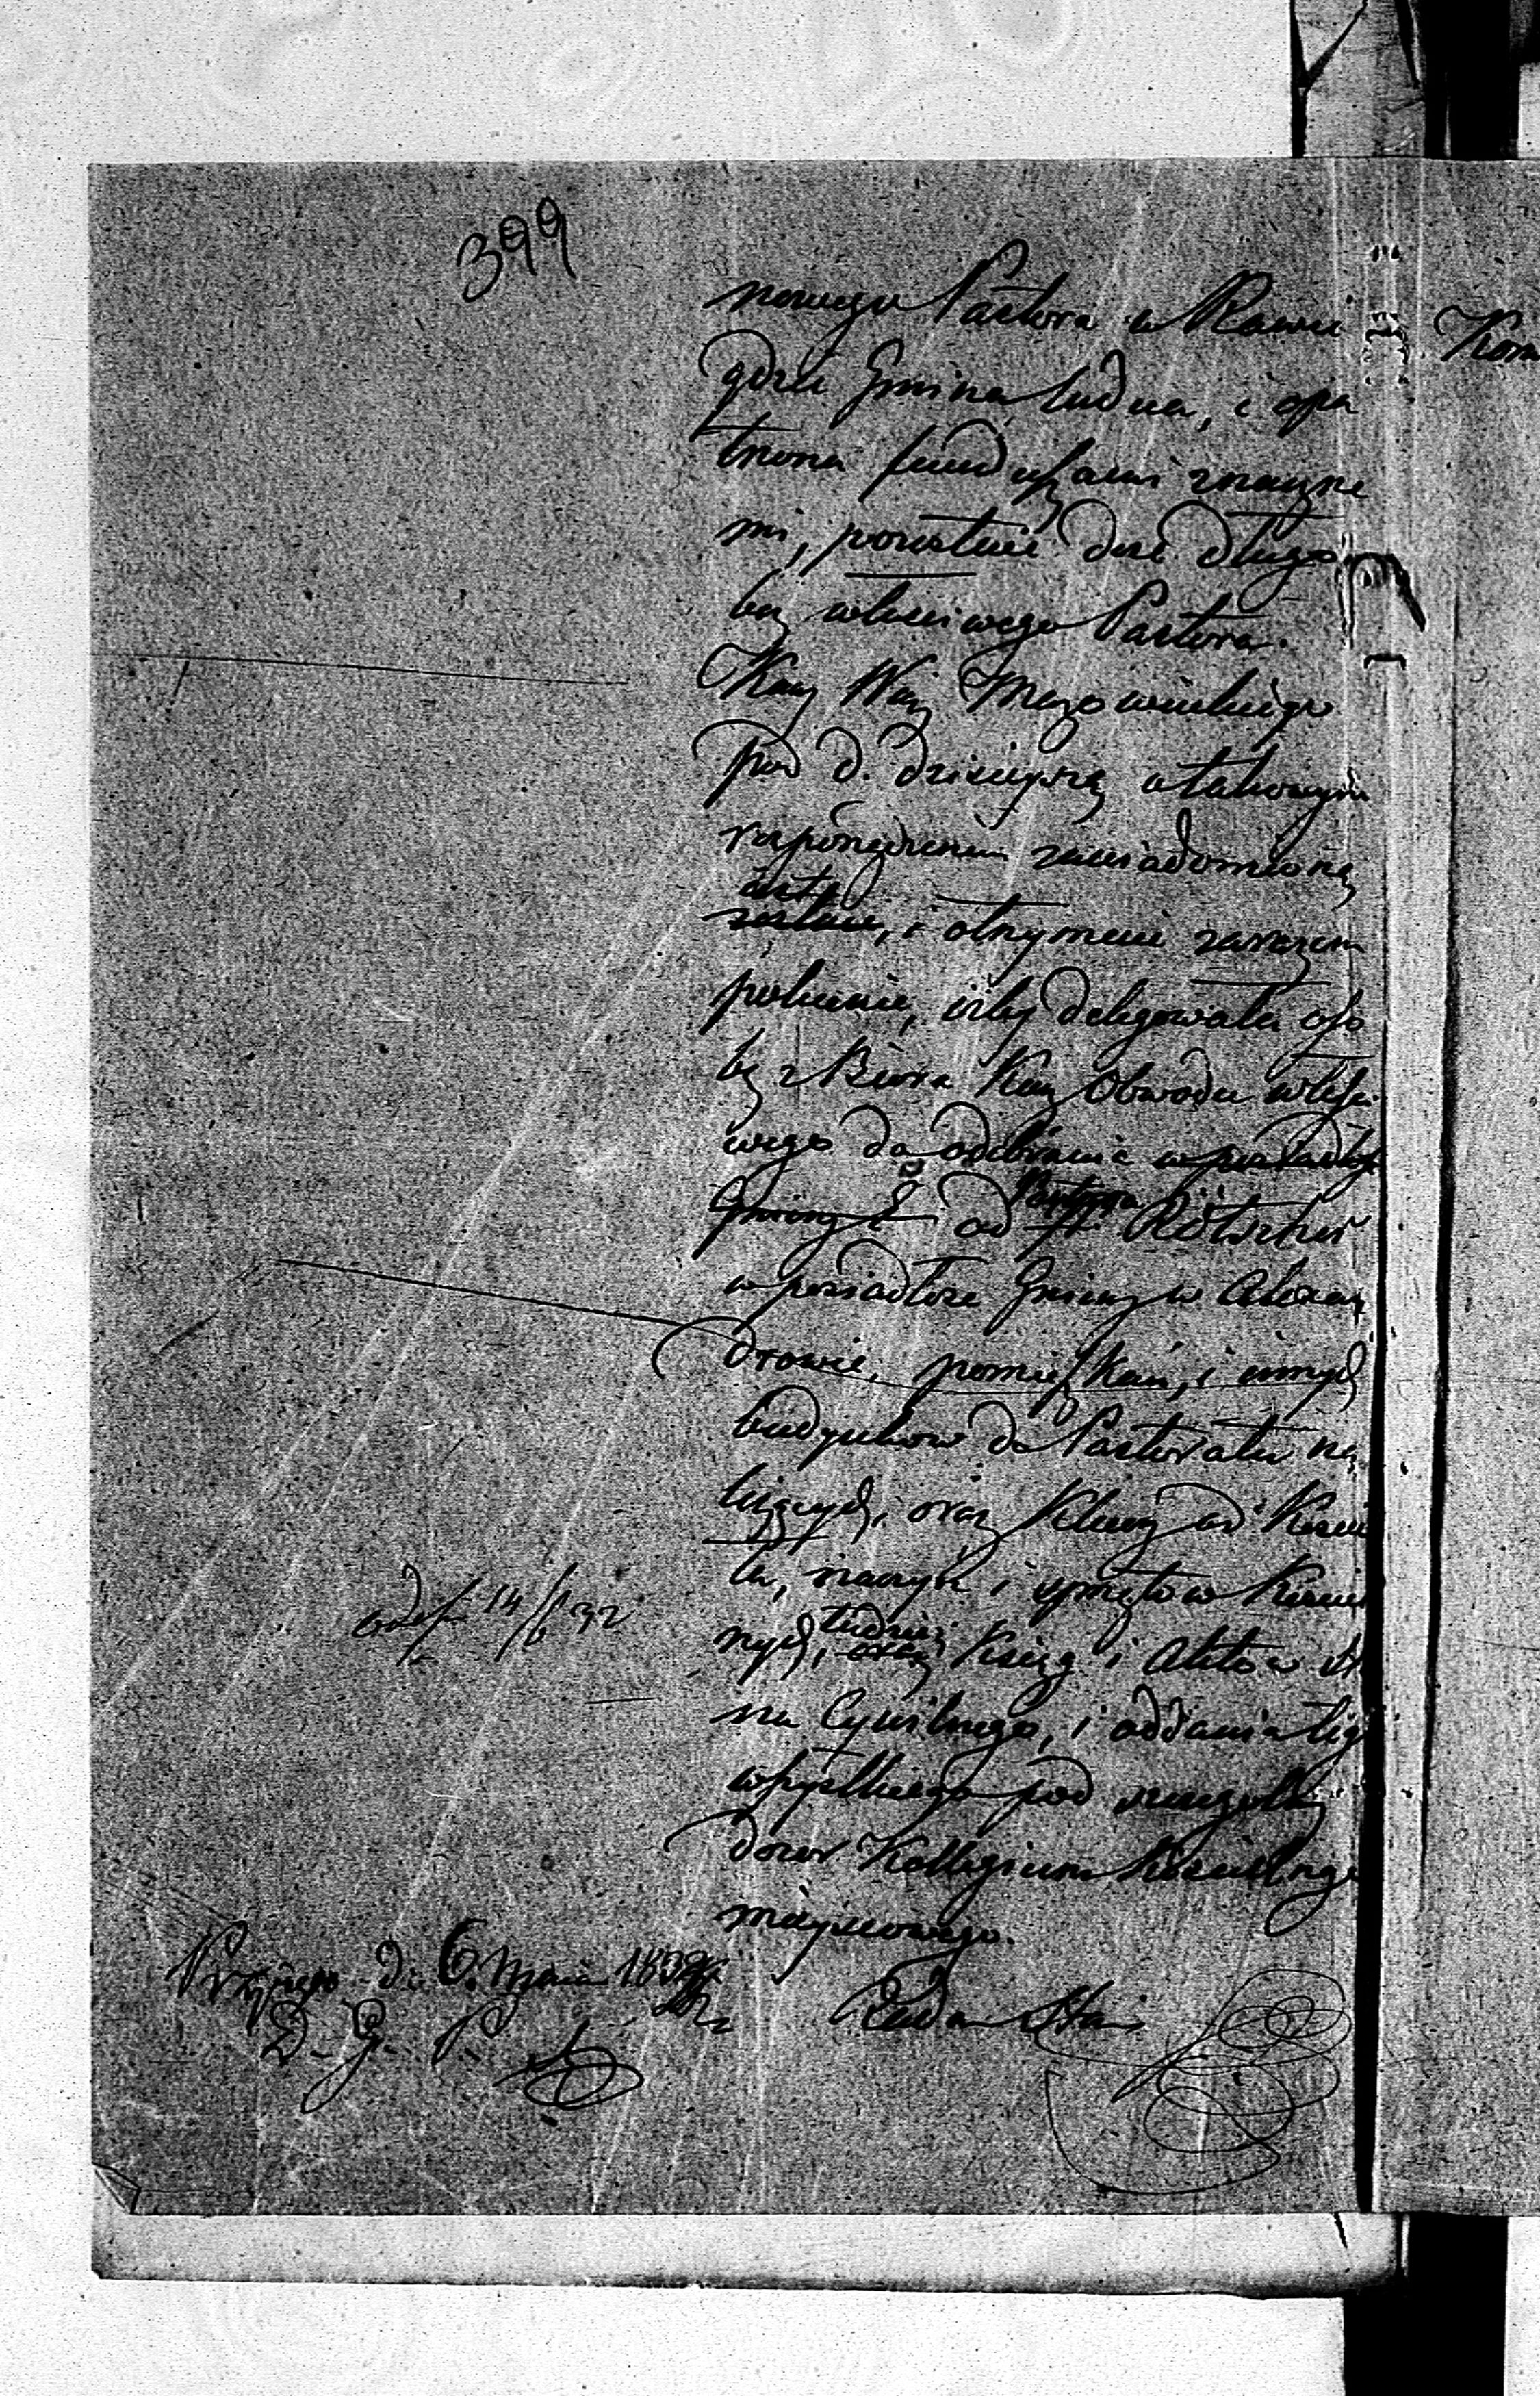 399
nowego Pastora w Rawie
gdzie Gmina ludna, i opa
trzona funduszami znaczne
mi, pozostaie dosć długo
bez właściwego Pastora.
Kom Wdz Mazowieckiego
pod d. dzisieyszą o takowym
rozporządzeniu zawiadomioną
zostaie, i otrzymuie zarazem
polecenie, iżby delegowała oso
bę z Biura Kom Obwodu właści
wego do odebrania w posiadłość
Gminy od Pastora
w posiadłość Gminy w Alexan
drowie, pomieszkań, i innych
budynków do Pastoratu na
leżących, oraz Kluczy od Kościo
ła, naczyń i sprzętów Kościel
nych, tudzież oraz Ksiąg i Aktów St
nu Cywilnego, i oddania teg
wszystkiego pod szczególny
dozór Kollegium Kościelnego
mieyscowego.
Radca Stanu
14/6 32
Przyjęto d. 6. Maia 1832
D. G. P.
Kom